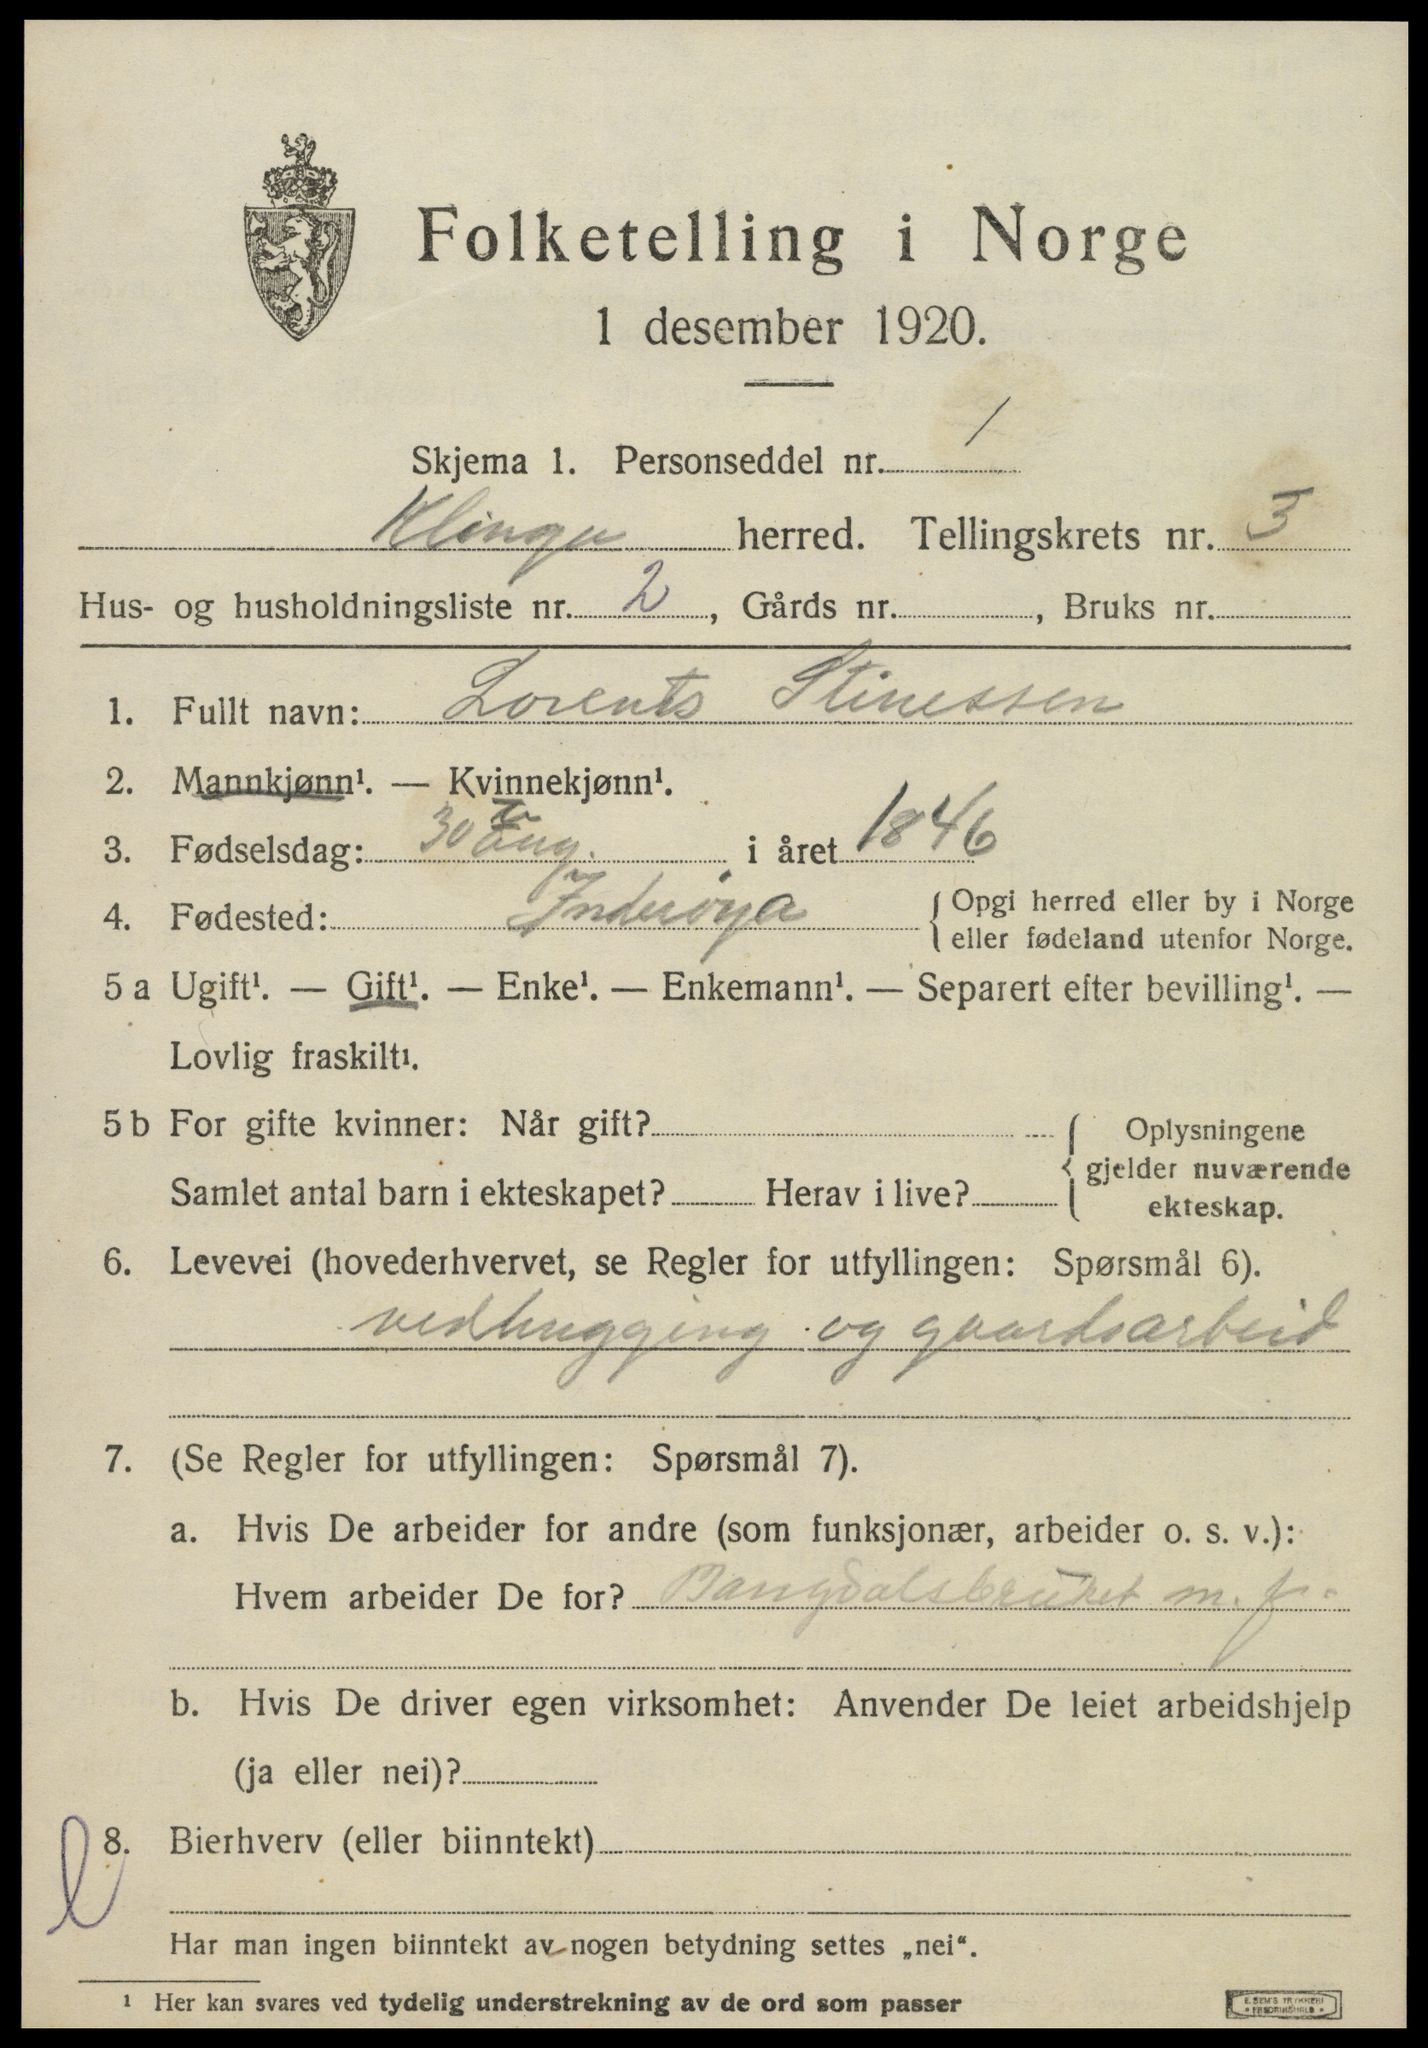 Folketelling i Norge
1 desember 1920.
Skjema 1. Personseddel nr. 1
Klinga herred. Tellingskrets nr. 3
Hus- og husholdningsliste nr. 2, Gårds nr. , Bruks nr.
1. Fullt navn: Lorents Stinessen
2. Mannkjønn¹. — Kvinnekjønn¹.
3. Fødselsdag: 30 Aug. i året 1846
4. Fødested: Inderøya { Opgi herred eller by i Norge
eller fødeland utenfor Norge.
5 a Ugift¹. — Gift¹. — Enke¹. — Enkemann¹. — Separert efter bevilling¹. —
Lovlig fraskilt¹.
5 b For gifte kvinner: Når gift? { Oplysningene
gjelder nuværende
Samlet antal barn i ekteskapet? Herav i live? ekteskap.
6. Levevei (hovederhvervet, se Regler for utfyllingen: Spørsmål 6).
vedhugging og gaardsarbeid
7. (Se Regler for utfyllingen: Spørsmål 7).
a. Hvis De arbeider for andre (som funksjonær, arbeider o. s. v.):
Hvem arbeider De for? Bangdalsbruket m. fl.
b. Hvis De driver egen virksomhet: Anvender De leiet arbeidshjelp
(ja eller nei)?
8. Bierhverv (eller biinntekt)
Har man ingen biinntekt av nogen betydning settes „nei“.
¹ Her kan svares ved tydelig understrekning av de ord som passer
E. SEM'S TRYKKERI
FREDRIKSHALD